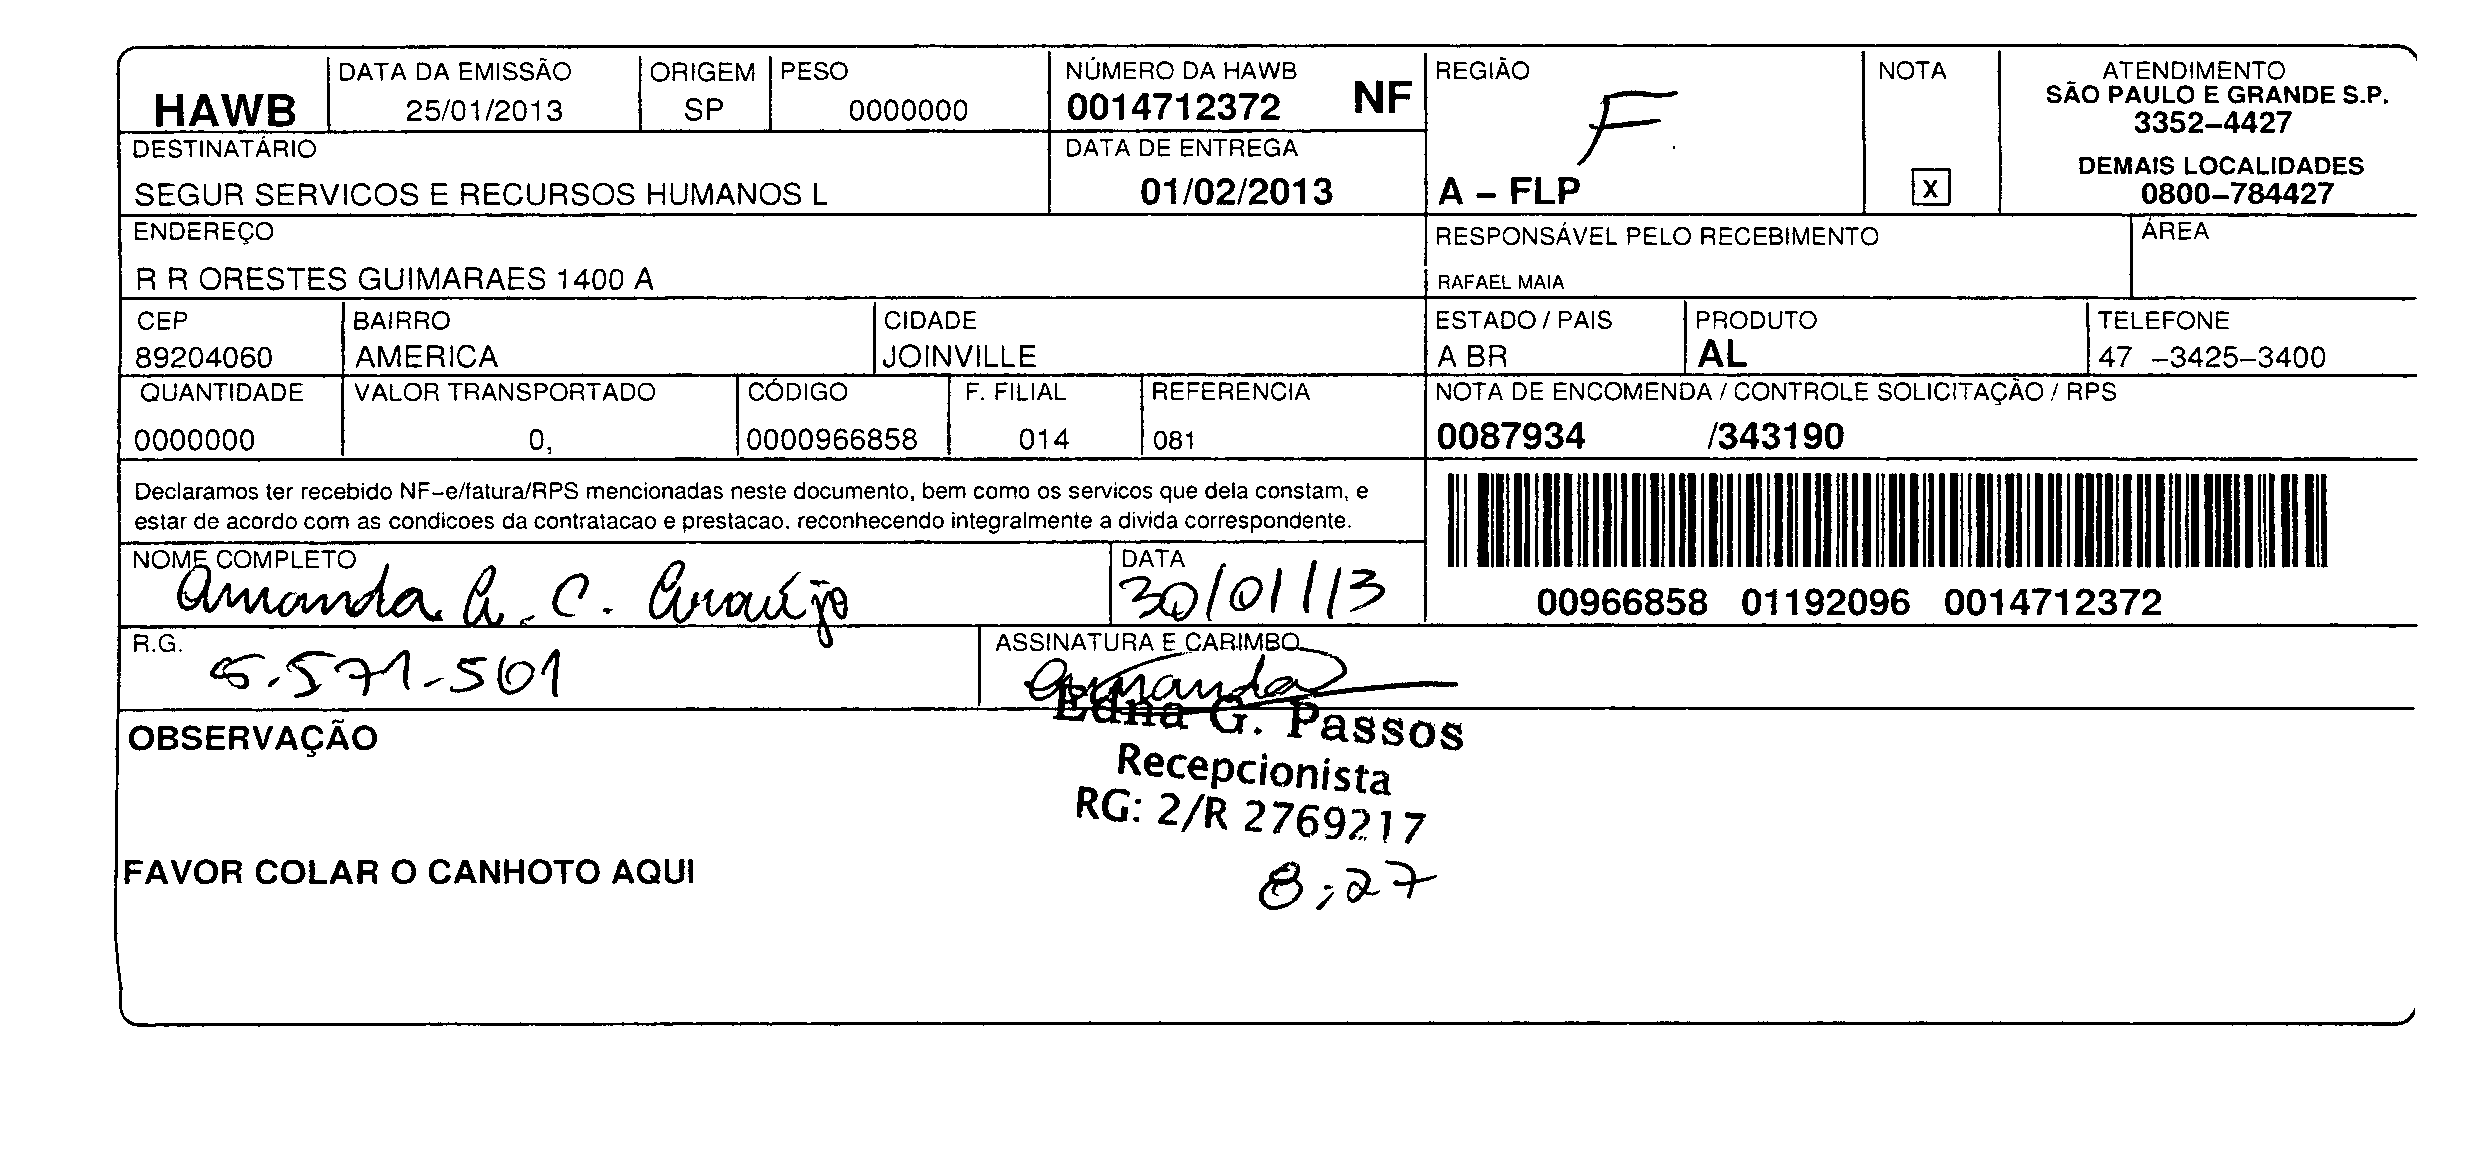 HAWB
DATA DA EMISSÃO
25/01/2013
ORIGEM
SP
PESO
0000000
NÚMERO DA HAWB
0014712372 NF
REGIÃO
F
A – FLP
NOTA
X
ATENDIMENTO
SÃO PAULO E GRANDE S.P.
3352–4427
DEMAIS LOCALIDADES
0800–784427
DESTINATÁRIO
SEGUR SERVICOS E RECURSOS HUMANOS L
DATA DE ENTREGA
01/02/2013
ENDEREÇO
R R ORESTES GUIMARAES 1400 A
RESPONSÁVEL PELO RECEBIMENTO
RAFAEL MAIA
ÁREA
CEP
89204060
BAIRRO
AMERICA
CIDADE
JOINVILLE
ESTADO / PAIS
A BR
PRODUTO
AL
TELEFONE
47 –3425–3400
QUANTIDADE
0000000
VALOR TRANSPORTADO
0,
CÓDIGO
0000966858
F. FILIAL
014
REFERENCIA
081
NOTA DE ENCOMENDA / CONTROLE SOLICITAÇÃO / RPS
0087934 /343190
Declaramos ter recebido NF–e/fatura/RPS mencionadas neste documento, bem como os servicos que dela constam, e
estar de acordo com as condicoes da contratacao e prestacao. reconhecendo integralmente a divida correspondente.
00966858 01192096 0014712372
NOME COMPLETO
Amanda A. C. Araújo
DATA
30/01/13
R.G.
5.571-501
ASSINATURA E CARIMBO
Amanda
Edna G. Passos
Recepcionista
RG: 2/R 2769217
8:27
OBSERVAÇÃO
FAVOR COLAR O CANHOTO AQUI